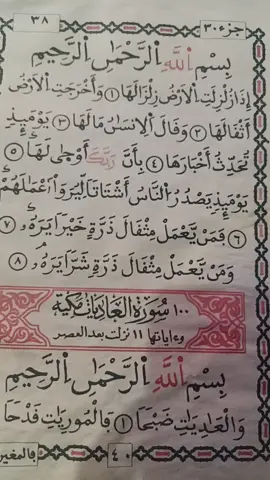 جزء ٣٠
٣٨
بِسْمِ اللَّهِ الرَّحْمَٰنِ الرَّحِيمِ
إِذَا زُلْزِلَتِ الْأَرْضُ زِلْزَالَهَا ١ وَأَخْرَجَتِ الْأَرْضُ
أَثْقَالَهَا ٢ وَقَالَ الْإِنسَٰنُ مَا لَهَا ٣ يَوْمَئِذٍ
تُحَدِّثُ أَخْبَارَهَا ٤ بِأَنَّ رَبَّكَ أَوْحَىٰ لَهَا ٥
يَوْمَئِذٍ يَصْدُرُ النَّاسُ أَشْتَاتًا لِّيُرَوْا أَعْمَٰلَهُمْ
٦ فَمَن يَعْمَلْ مِثْقَالَ ذَرَّةٍ خَيْرًا يَرَهُ ٧
وَمَن يَعْمَلْ مِثْقَالَ ذَرَّةٍ شَرًّا يَرَهُ ٨
١٠٠ سُورَةُ الْعَادِيَاتِ مَكِّيَّة
وءاياتها ١١ نزلت بعد العصر
بِسْمِ اللَّهِ الرَّحْمَٰنِ الرَّحِيمِ
وَالْعَٰدِيَٰتِ ضَبْحًا ١ فَالْمُورِيَٰتِ قَدْحًا
٤٠
فالمغير